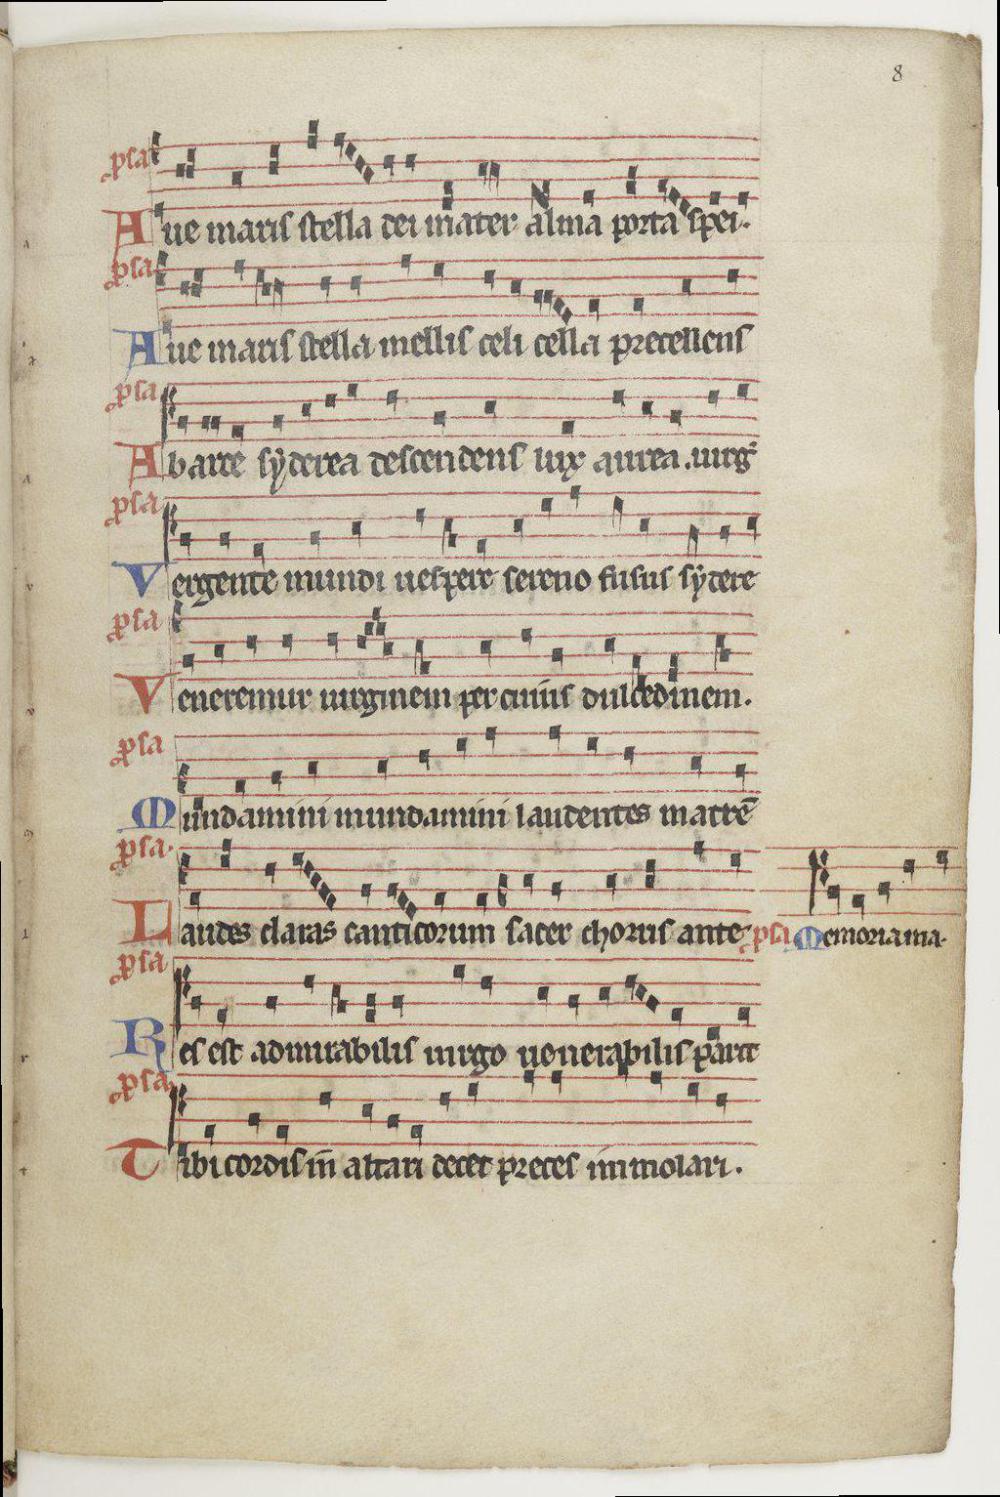 8
p̱sa
Aue maris stella dei mater alma porta spei.
p̱sa
Aue maris stella mellis celi cella precellens
p̱sa
Ab arce sẏderea descendens lux aurea. uirg̃
p̱sa
Vergente mundi uespere sereno fusus sẏdere
p̱sa
Veneremur uirginem per cuius dulcedinem.
p̱sa
Mundamini mundamini laudentes matrē
p̱sa.
Laudes claras canticorum sacer chorus ante p̱sa Memoria ma.
p̱sa
Res est admirabilis uirgo uenerabilis parit
p̱sa
Tibi cordis in̄ altari decet preces immolari.